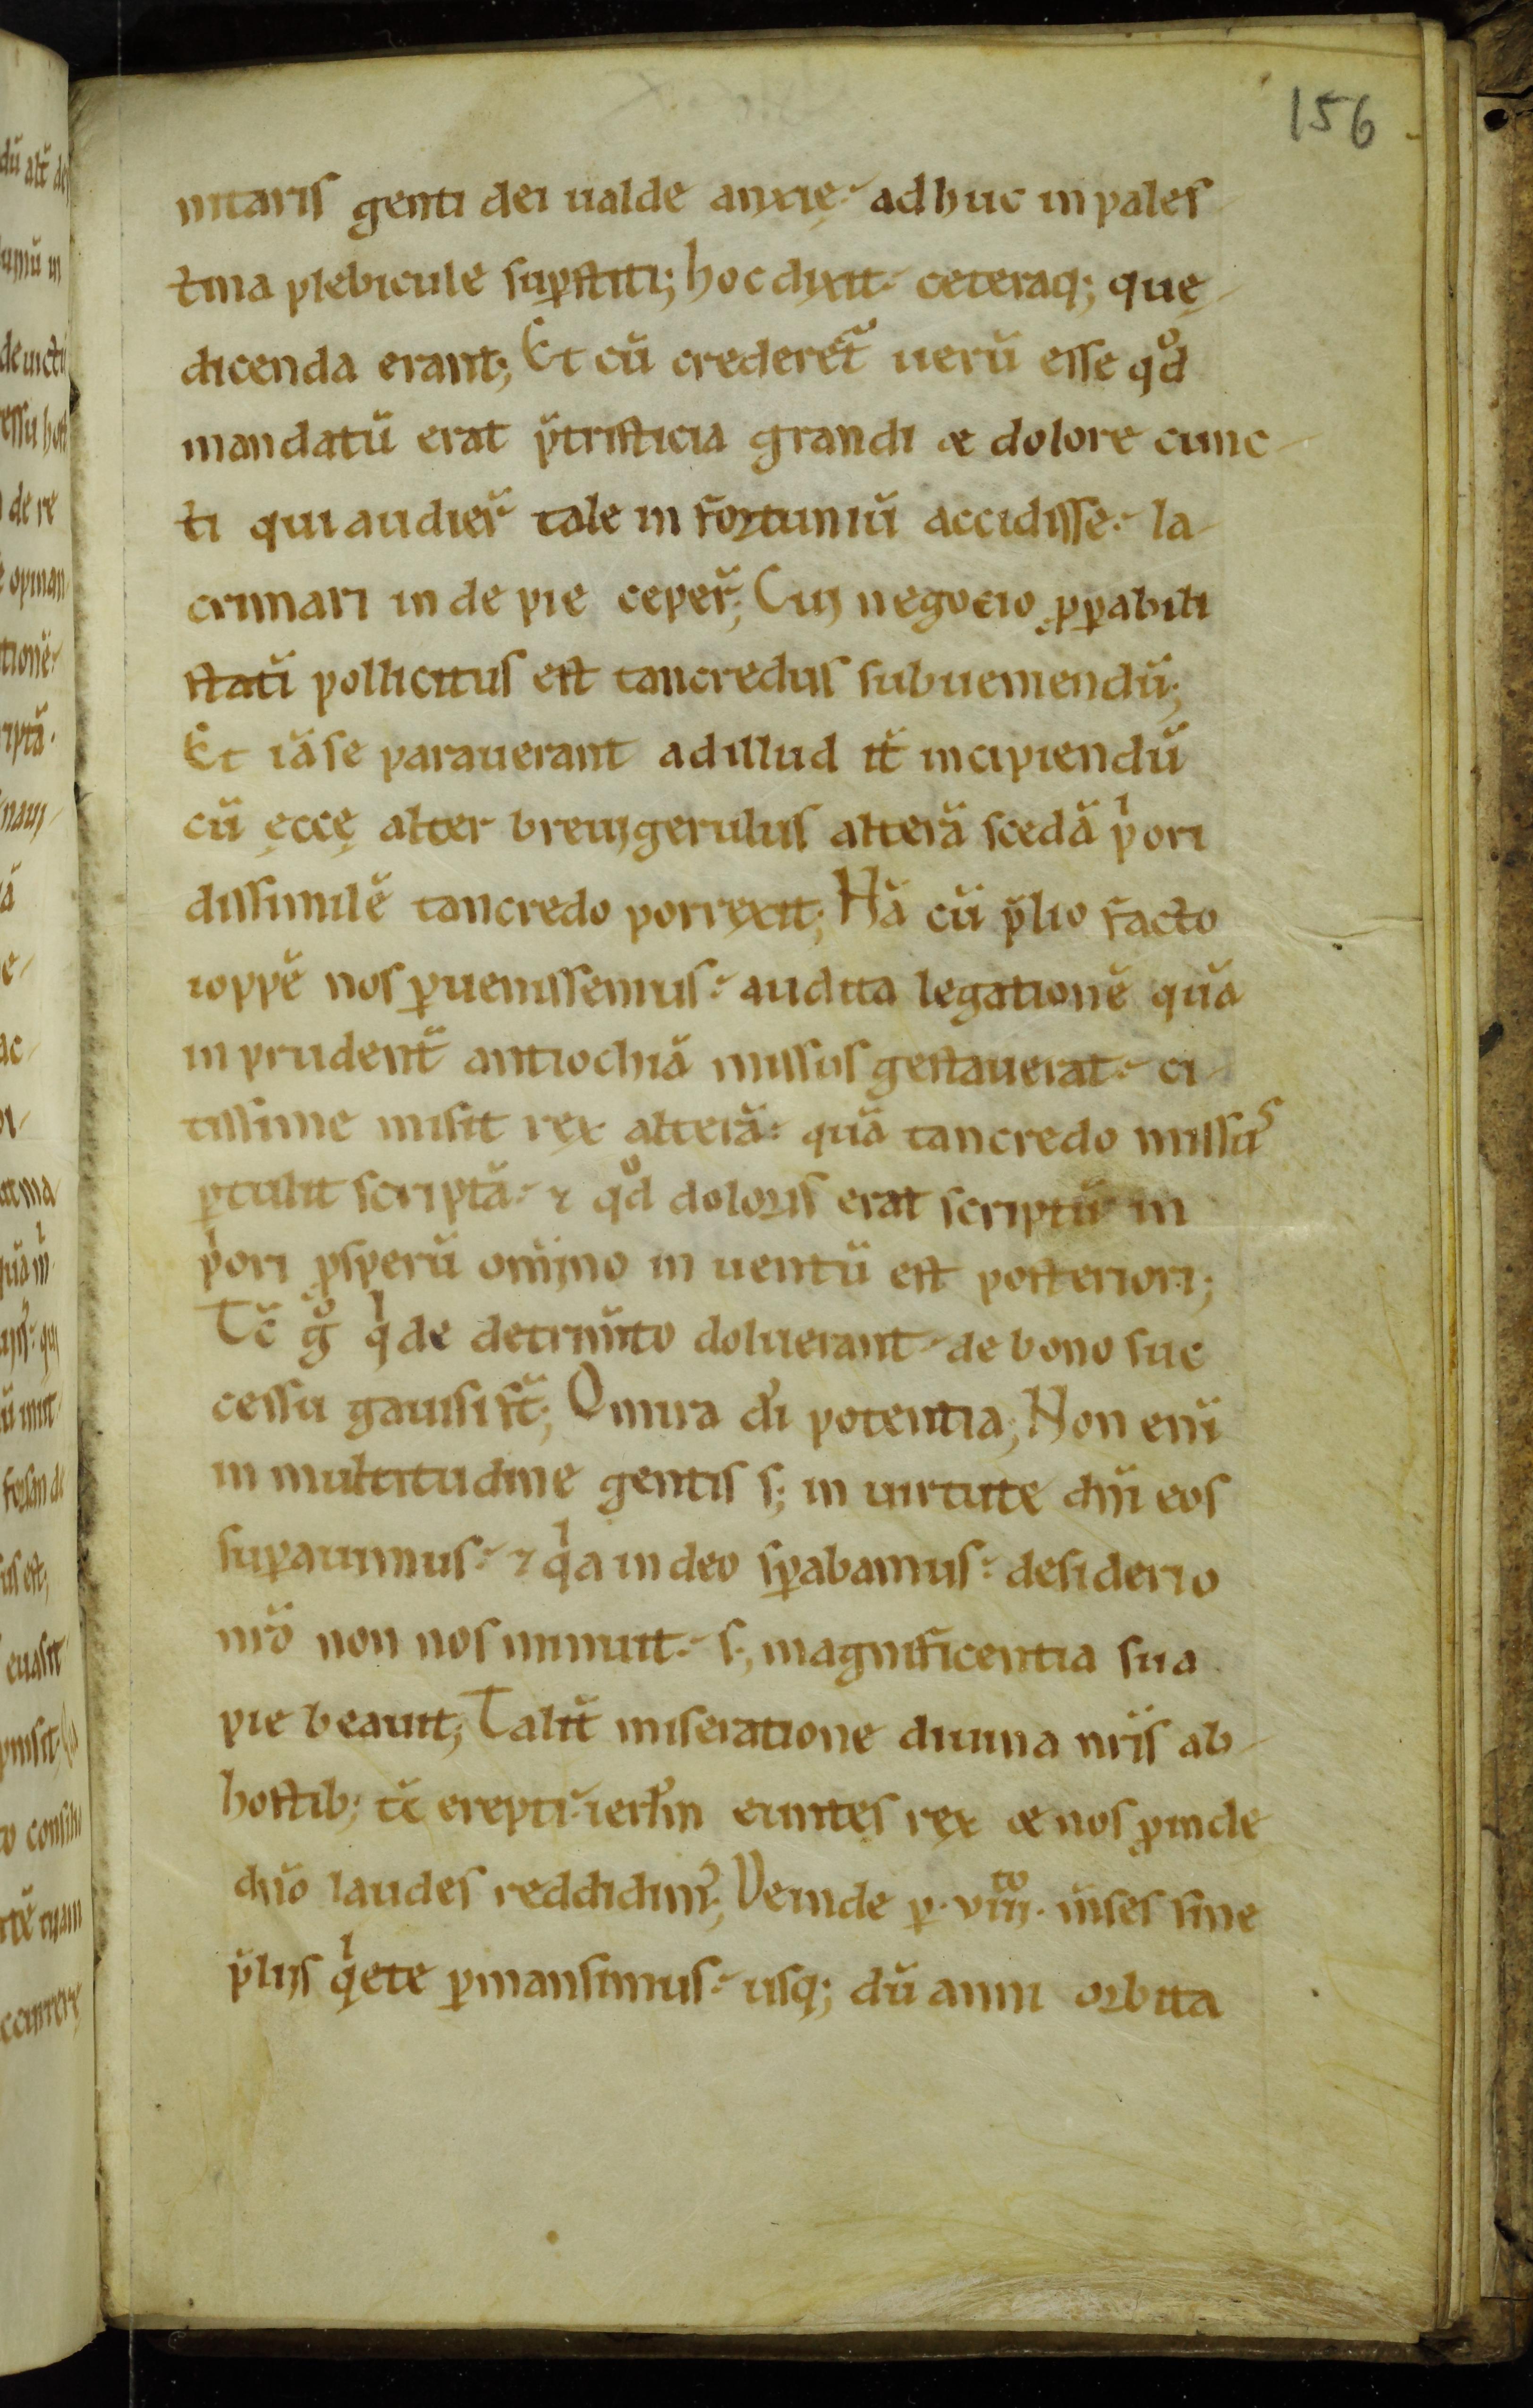 156
nitaris genti dei ualde anxię. adhuc in pales
t̄ina plebicule sup̄stiti; hoc dixit. ceteraq; quę
dicenda erant; Et cū crederet᷑ uerū esse qd̊
mandatū erat p̄tristicia grandi & dolore cunc
ti qui audier̄ tale infortuniū accidisse. la
crimari inde pie ceper̄; Cuꝯ negocio ꝓꝑabili
statī pollicitus est tancredus subueniendū;
Et iā se parauerant ad illud it̄ incipiendū
cū ęccę alter breuigerulus alterā scedā pͥori
dissimilē tancredo porrexit; Nā cū p̄lio facto
ioppē nos ꝑuenissemus. audita legationē quā
inprudent̄ antiochiā missus gestauerat. ci
tissime misit rex alterā. quā tancredo missꝰ
ꝑtulit scriptā. ⁊ qd̊ doloris erat scriptū in
pͥori ꝓsperū omīno inuentū est posteriori;
Tc̄ g̊ qͥ de detrim̄to doluerant. de bono suc
cessu gauisi st̄; O mira dī potentia; Non enī
in multitudine gentis s; in uirtute dn̄i eos
suꝑauimus. ⁊ qͥa in deo sꝑabamus. desiderio
nr̄o non nos minuit. s; magnificentia sua
pie beauit; Talit̄ miseratione diuina nr̄is ab
hostib; tc̄ erepti. ierl̄m euntes rex & nos ꝓinde
dn̄o laudes reddidimꝰ; Deinde ꝑ .viiijto. m̄ses sine
p̄liis qͥete ꝑmansimus. usq; dū anni orbita